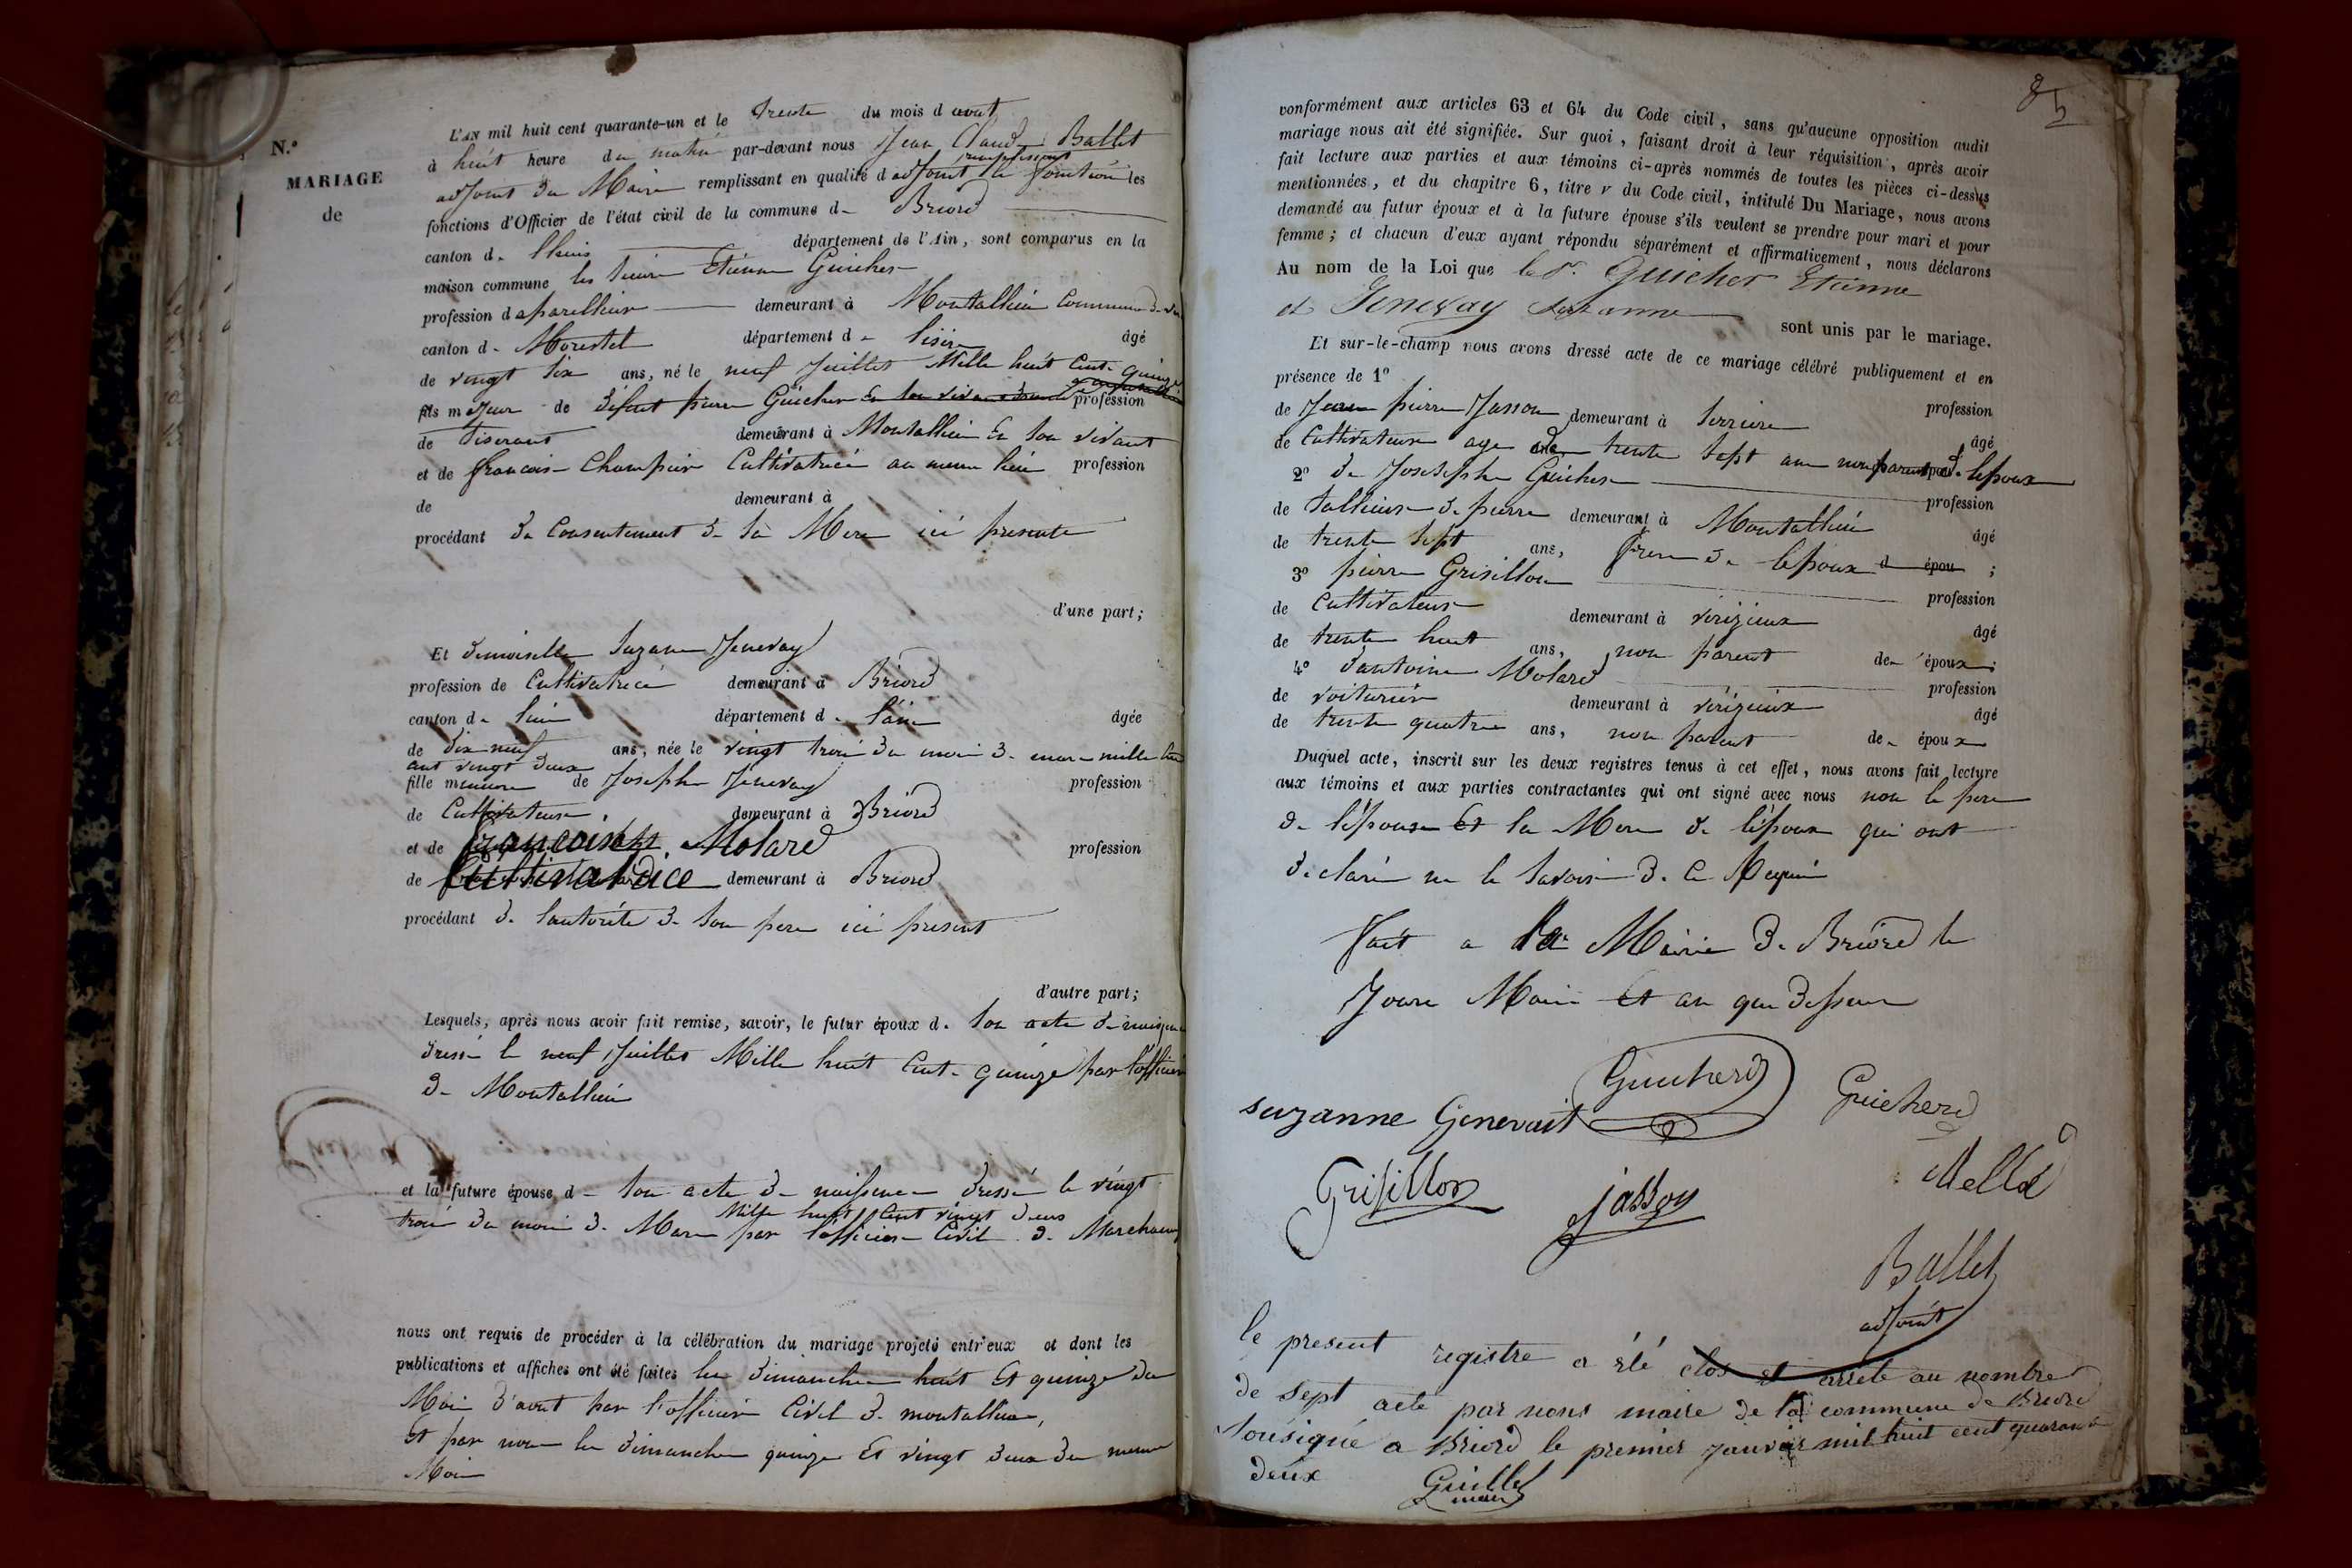 N.º
MARIAGE
de
L'AN mil huit cent quarante-un et le trente du mois d aout
à huit heure du matin par-devant nous Jean Claude Ballet
remplissant
adjoint du Maire remplissant en qualité d adjoint la fonction les
fonctions d'Officier de l'état civil de la commune d- Briord
canton d- lhuis département de l'Ain, sont comparus en la
maison commune les sieur Etienne Guicher
profession d aparellieur demeurant à Montallieu Commune d-
canton d- Morestel département d- lisere âgé
de vingt six ans, né le neuf Juillet Mille huit Cent quinze
fils majeur de défunt pierre Guicher profession
de tiserant demeurant à Montallieu En son vivant
et de francoise Champier Cultivatrice au meme lieu profession
de demeurant à
procédant du Consentement de sa Mere ici presente
d'une part;
Et demoiselle Suzanne Jenevay
profession de Cultivatrice demeurant à Briord
canton d- département d- lain âgée
de dix neuf ans, née le vingt trois du mois de mars mille huit
cent vingt deux
fille mineure de Joseph Jenevay profession
de Cultivateur demeurant à Briord
et de francoise Molard profession
de Cultivatrice demeurant à Briord
procédant de lautorité de son pere ici present
d'autre part;
Lesquels, après nous avoir fait remise, savoir, le futur époux d- son acte de naissance
dressé le neuf Juillet Mille huit Cent quinze par l'officier
de Montallieu
et la future épouse d- son acte de naissance dressé le vingt
Mille huit Cent vingt deux
trois du mois de Mars par l'officier Civil de Marchamp
nous ont requis de procéder à la célébration du mariage projeté entr'eux et dont les
publications et affiches ont été faites les dimanche huit Et quinze du
Mois d'aout par l'officier Civil de montallieu,
Et par nous les dimanche quinze Et vingt deux du meme
Mois
85
conformément aux articles 63 et 64 du Code civil, sans qu'aucune opposition audit
mariage nous ait été signifiée. Sur quoi, faisant droit à leur réquisition, après avoir
fait lecture aux parties et aux témoins ci-après nommés de toutes les pièces ci-dessus
mentionnées, et du chapitre 6, titre v du Code civil, intitulé Du Mariage, nous avons
demandé au futur époux et à la future épouse s'ils veulent se prendre pour mari et pour
femme; et chacun d'eux ayant répondu séparément et affirmativement, nous déclarons
Au nom de la Loi que le Sr. Guicher Etienne
et Genevay Suzanne sont unis par le mariage.
Et sur-le-champ nous avons dressé acte de ce mariage célébré publiquement et en
présence de 1º profession
de Jean pierre Jasson demeurant à Serriere âgé
de Cultivateur age de trente sept ans non parent de lepoux
2º de Joseseph Guicher profession
de tallieur de pierre demeurant à Montallieu âgé
de trente sept ans, frere de lepoux d épou ;
3º pierre Grisillon profession
de Cultivateur demeurant à verizieux âgé
de trente huit ans, non parent de- époux;
4º d'antoine Molard profession
de voiturier demeurant à vérizieux âgé
de trente quatre ans, non parent de- époux
Duquel acte, inscrit sur les deux registres tenus à cet effet, nous avons fait lecture
aux témoins et aux parties contractantes qui ont signé avec nous non le pere
de lépouse Et la Mere de lépoux qui ont
déclaré ne le savoir de Ce Requis
Fait a la Mairie de Briord le
Jour Mois Et an que dessus
Guicherd
suzanne Genevait
Guicherd
Grisillon
jasson
Ballet
adjoint
le present registre a été clos et arrete au nombre
de sept acte par nous maire de la commune de Briord
sousigné a Briord le premier janvier mil huit cent quarante
deux
Guillet
maire